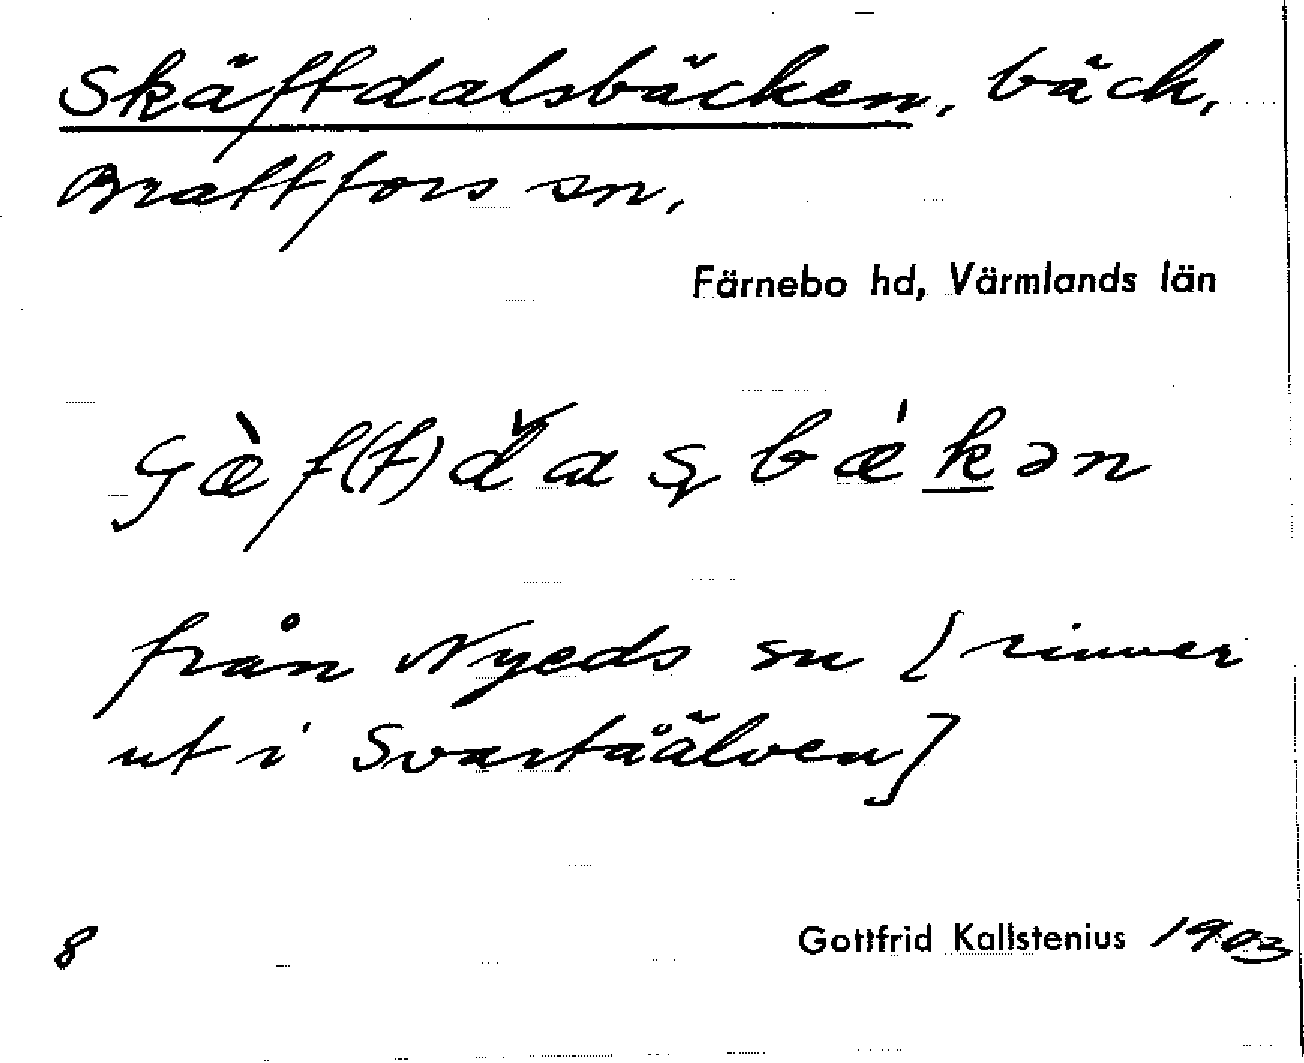 Skäftdalsbäcken, bäck,
Brattfors sn,
Färnebo hd, Värmlands län
från Nyeds sn [rinner
ut i Svartåälven]
8
Gottfrid Kallstenius 1903